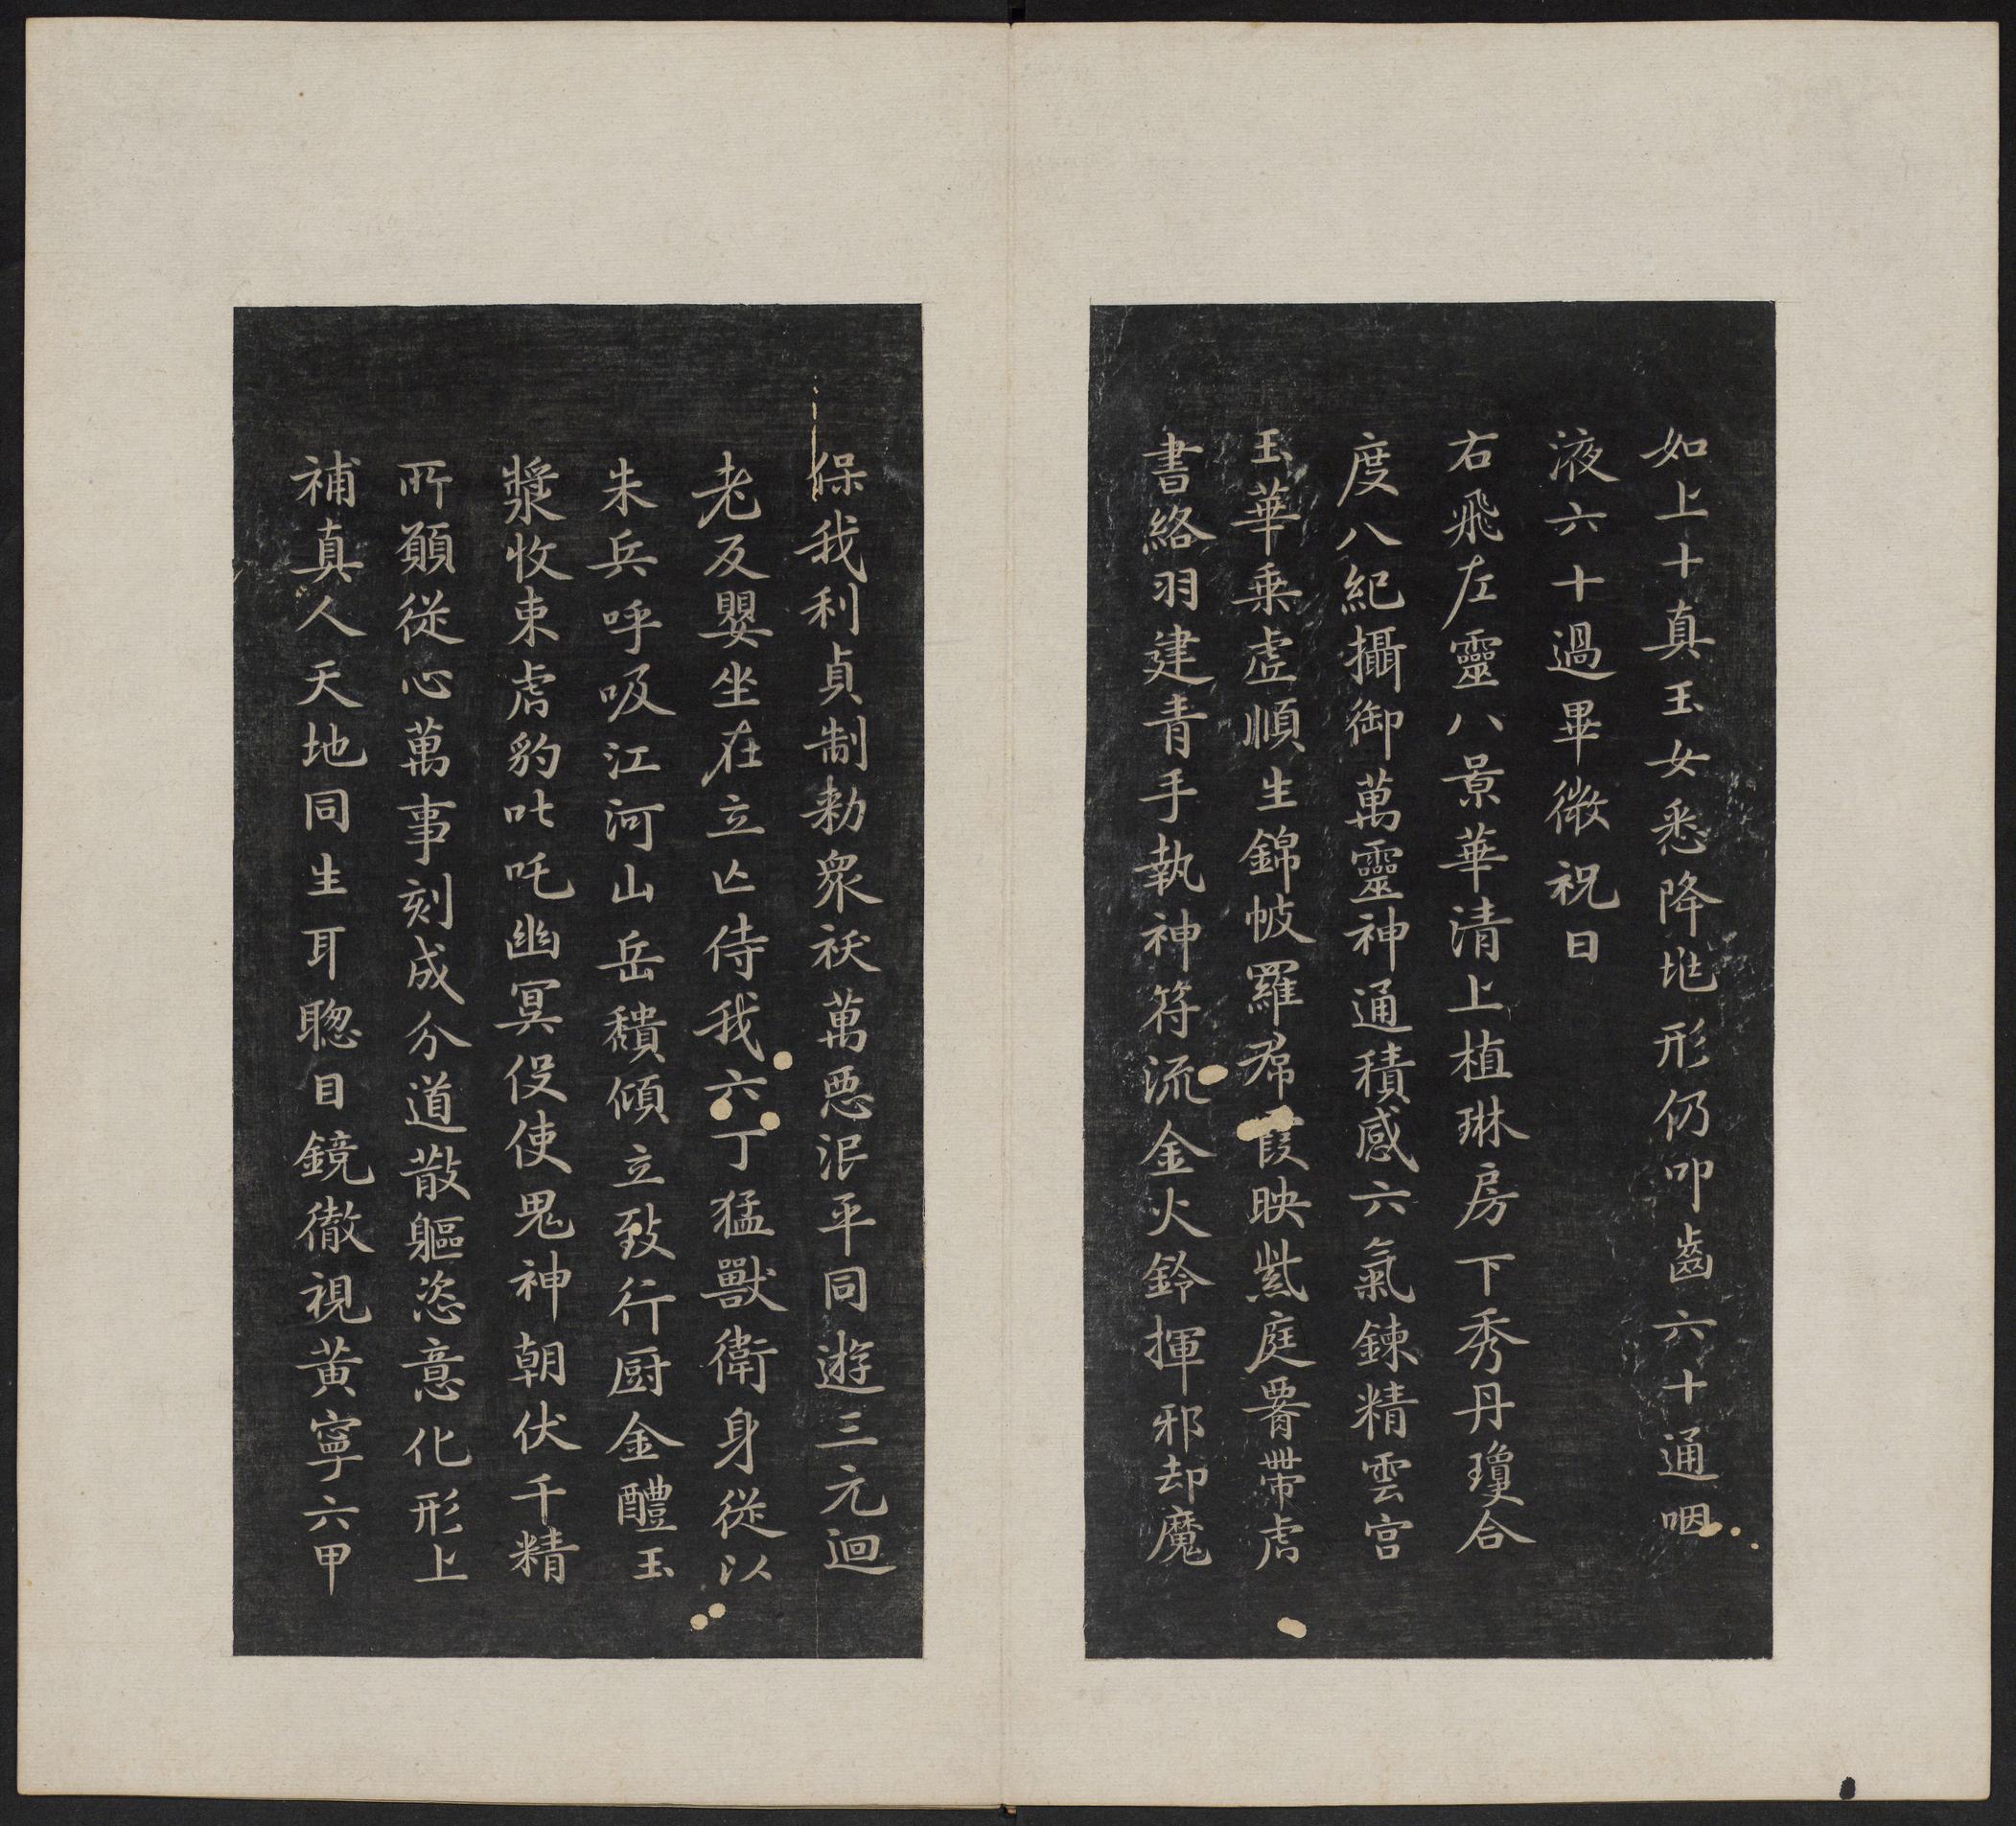 如上十真玉女悉降地形仍叩齒六十通咽
液六十過畢微祝曰
右飛左靈八景華清上植琳房下秀丹瓊合
度八紀攝御萬靈神通積感六氣鍊精雲宫
玉華乗虚順生錦帔羅帬霞映紫庭腰帶虎
書絡羽建青手執神符流金火鈴揮邪却魔
保我利貞制勑衆祅萬惡泯平同遊三元迴
老反嬰坐在立亡侍我六丁猛獸衛身從以
朱兵呼吸江河山岳穨傾立致行厨金醴玉
漿收束虎豹叱吒幽冥役使鬼神朝伏千精
所願從心萬事刻成分道散軀恣意化形上
補真人天地同生耳聰目鏡徹視黄寧六甲